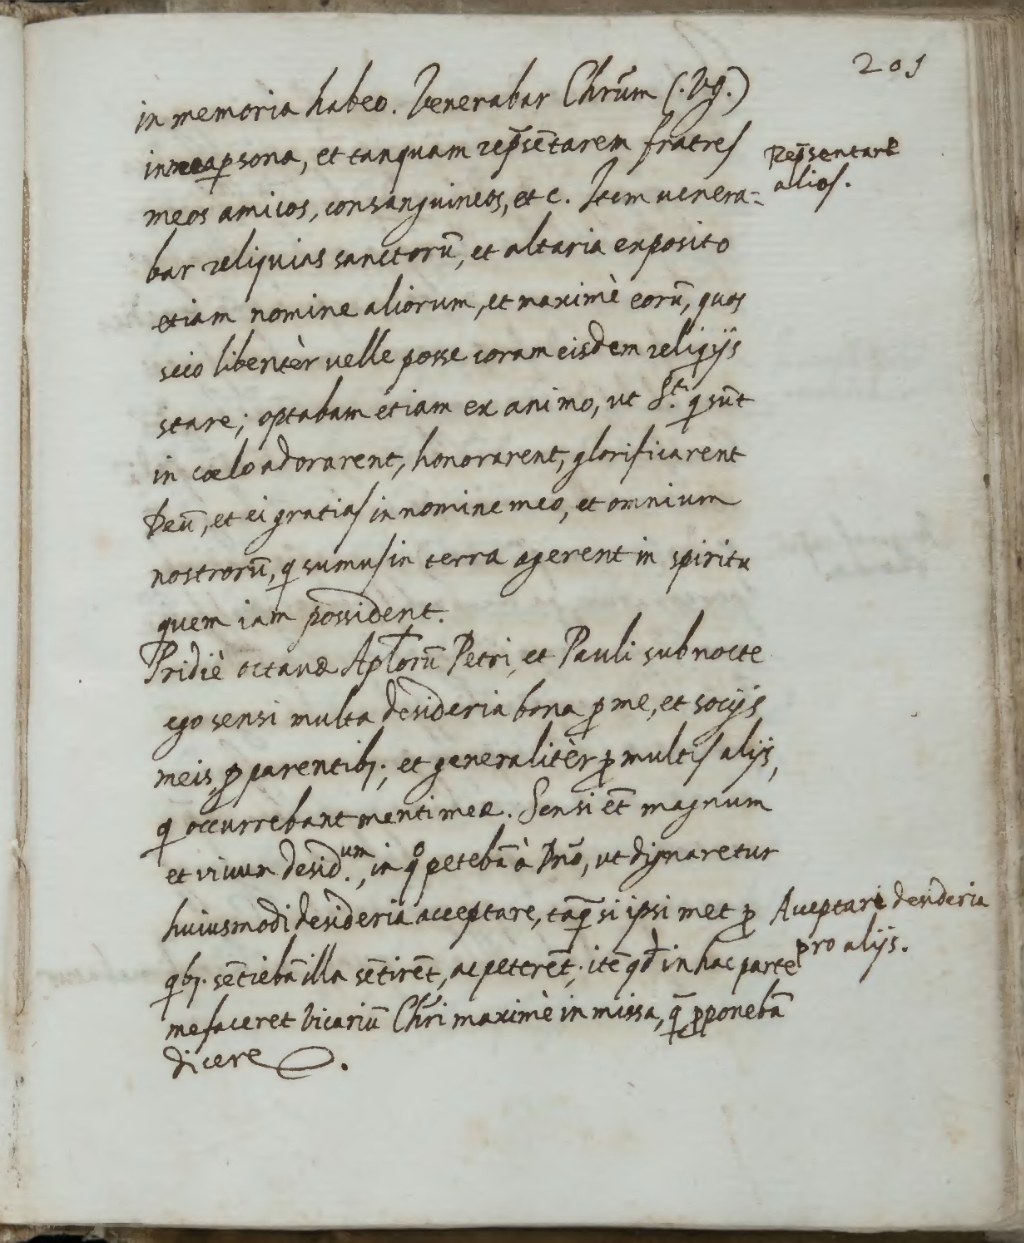 201
in memoria habeo. Venerabar Chr̃um (. V.g.)
in mea ꝑsona, et tanquam rep̃sẽtarem fratres
Rep̃sentare
alios.
meos amicos, consanguineos, et c. Item venera=
bar reliquias sanctorũ, et altaria exposito
etiam nomine aliorum, et maximè eorũ, quos
scio libentèr velle posse coram eisdem reliqijs
stare; optabam etiam ex animo, ut S.ti q sũt
in cœlo adorarent, honorarent, glorificarent
Deũ, et ei gratias in nomine meo, et omnium
nostrorũ, q sumus in terra agerent in spiritu
quem iam possident.
Pridiè octavæ Apl̃orũ Petri, et Pauli sub nocte
ego sensi multa desideria bona ꝓ me, et socijs
meis, ꝓ parentib;, et generalitèr ꝓ multis alijs,
q occurrebant menti meæ. Sensi et̃ magnum
et vivum desid.um, in qo petebã à Dño, ut dignaretur
huiusmodi desideria acceptare, tãq̃ si ipsi met ꝓ
Acceptari desideria
pro alijs.
qb; sẽtiebã illa sẽtirẽt, ac peterẽt; itẽ qđ in hac parte
me faceret Vicariũ Chr̃i maximè in missa, q̃ ꝓponebã
dicere.